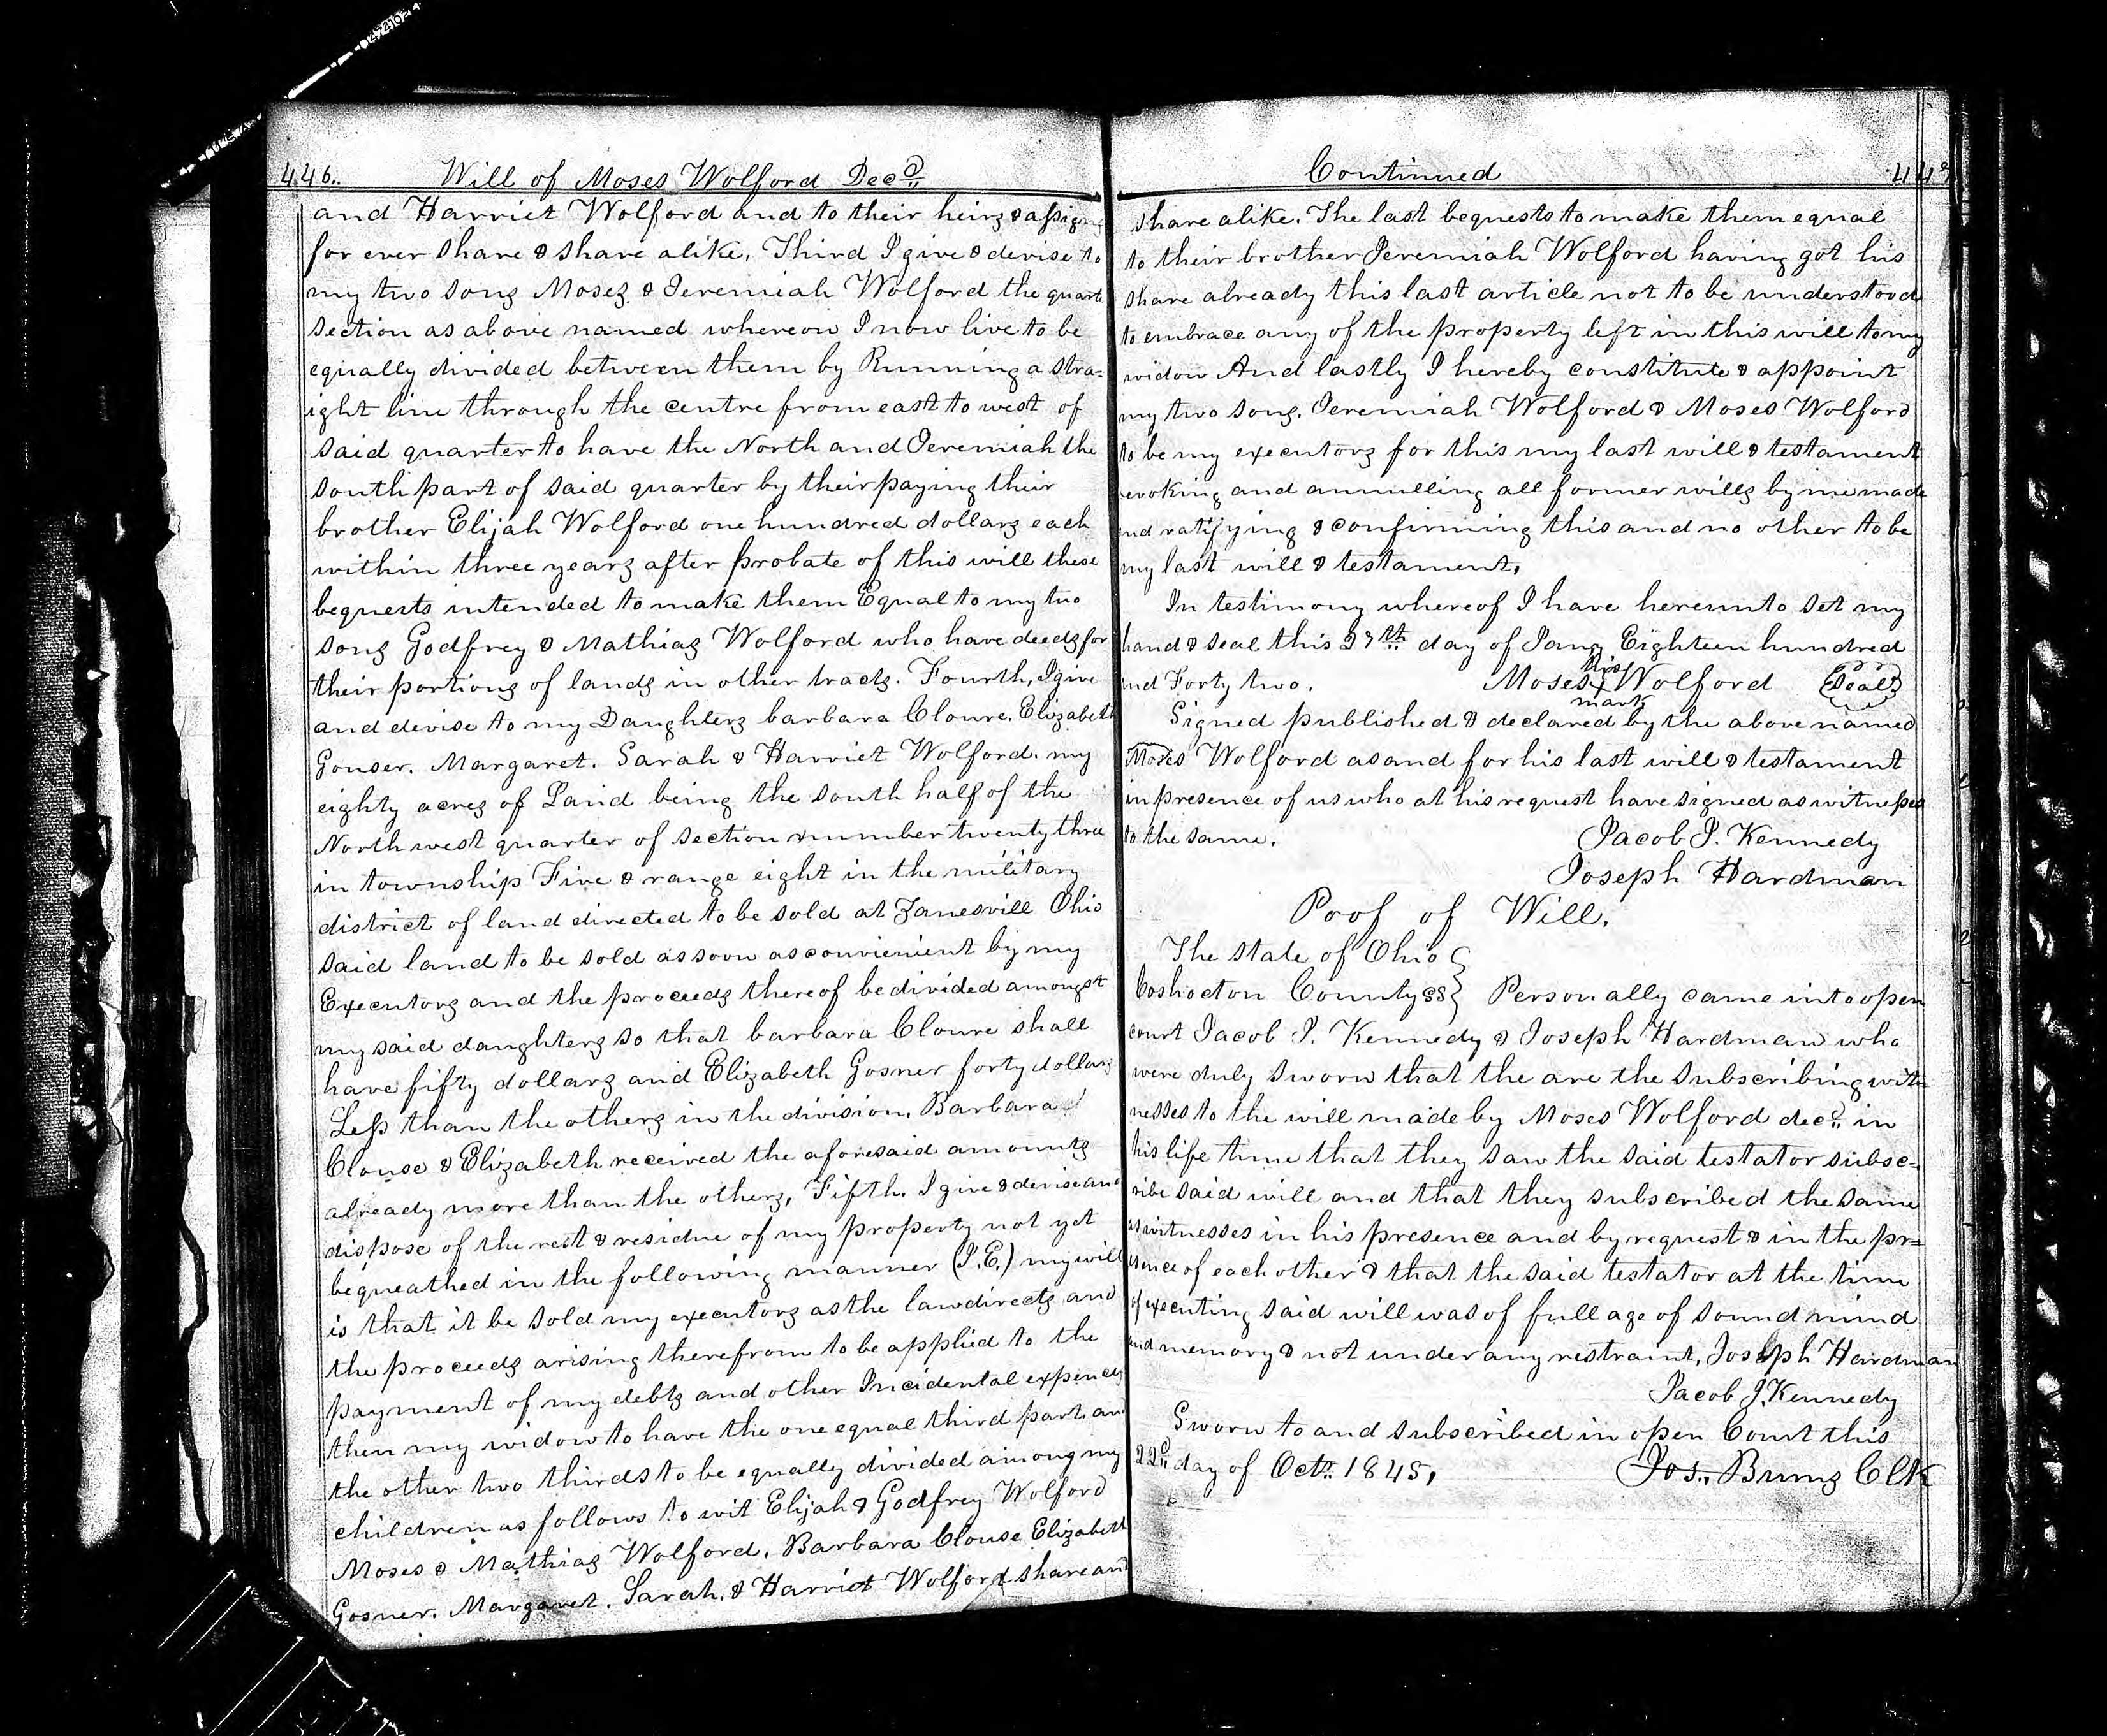 446.. Will of Moses Wolford Decd
and Harriet Wolford and to their heirs & assigns
for ever share & share alike, Third I give & devise to
my two sons Moses & Jeremiah Wolford the quart
section as above named whereon I now live to be
equally divided between them by Running a stra=
ight line through the centre from east to west of
said quarter to have the North and Jeremiah the
south part of said quarter by their paying their
brother Elijah Wolford one hundred dollars each
within three years after probate of this will these
bequests intended to make them Equal to my two
sons Godfrey & Mathias Wolford who have deeds for
their portions of lands in other tracts. Fourth, I give
and devise to my Daughters barbara Cloure. Elizabeth
Gonser. Margaret. Sarah & Harriet Wolford. my
eighty acres of Land being the south half of the
North west quarter of section number twenty three
in township Five & range eight in the military
district of land directed to be sold at Zanesvill Ohio
said land to be sold as soon as convienient by my
Executors and the proceeds thereof be divided amongst
my said daughters so that barbara Cloure shall
have fifty dollars and Elizabeth Gosner forty dollars
Less than the others in the division. Barbara
Clouse & Elizabeth received the aforesaid amounts
already more than the others, Fifth. I give & devise and
dispose of the rest & residue of my property not yet
bequeathed in the following manner (I.E.) my will
is that it be sold my executors as the law directs and
the proceeds arising therefrom to be applied to the
payment of my debts and other Incidental expences
then my widow to have the one equal third part and
the other two thirds to be equally divided among my
children as follows to wit Elijah & Godfrey Wolford
Moses & Mathias Wolford. Barbara Clouse Elizabeth
Gosner. Margaret. Sarah. & Harriet Wolford share and
Continued 447
share alike. The last bequests to make them equal
to their brother Jeremiah Wolford having got his
share already this last article not to be understood
to embrace any of the property left in this will to my
widow And lastly I hereby constitute & appoint
my two sons. Jeremiah Wolford & Moses Wolford
to be my executors for this my last will & testament
revoking and annulling all former wills by me made
and ratifying & confirming this and no other to be
my last will & testament.
In testimony whereof I have hereunto set my
hand & seal this 27th day of Jany Eighteen hundred
and Forty two. Moses his X mark Wolford Seal
Signed published & declared by the above named
Moses Wolford as and for his last will & testament
in presence of us who at his request have signed as witnesses
to the same. Jacob J. Kennedy
Joseph Hardman
Poof of Will.
The state of Ohio }
Coshocton County ss } Personally came into open
court Jacob J. Kennedy & Joseph Hardman who
were duly sworn that the are the subscribing wit=
nesses to the will made by Moses Wolford decd in
his life time that they saw the said testator subsc=
ribe said will and that they subscribed the same
as witnesses in his presence and by request & in the pr=
esence of each other & that the said testator at the time
of executing said will was of full age of sound mind
and memory & not under any restraint, Joseph Hardman
Jacob J. Kennedy
Sworn to and subscribed in open Court this
22d day of Octr. 1845, Jos., Burns Clk